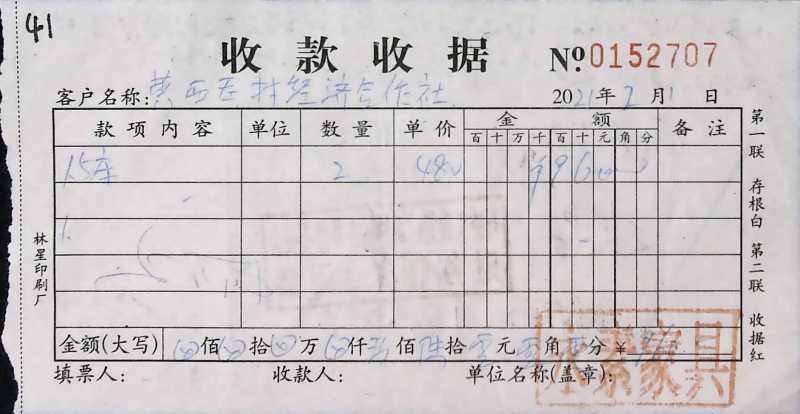 41
收款收据 №0152707
客户名称: 黄西岙村经济合作社 2021年2月1日
款项内容 单位 数量 单价 金额 备注
百 十 万 千 百 十 元 角 分
2 480 ¥96000
金额(大写) 佰 拾 万 仟 玖佰 陆拾 零元 角 分 ¥
填票人: 收款人: 单位名称(盖章):
家具
林星印刷厂
第一联 存根白 第二联 收据红